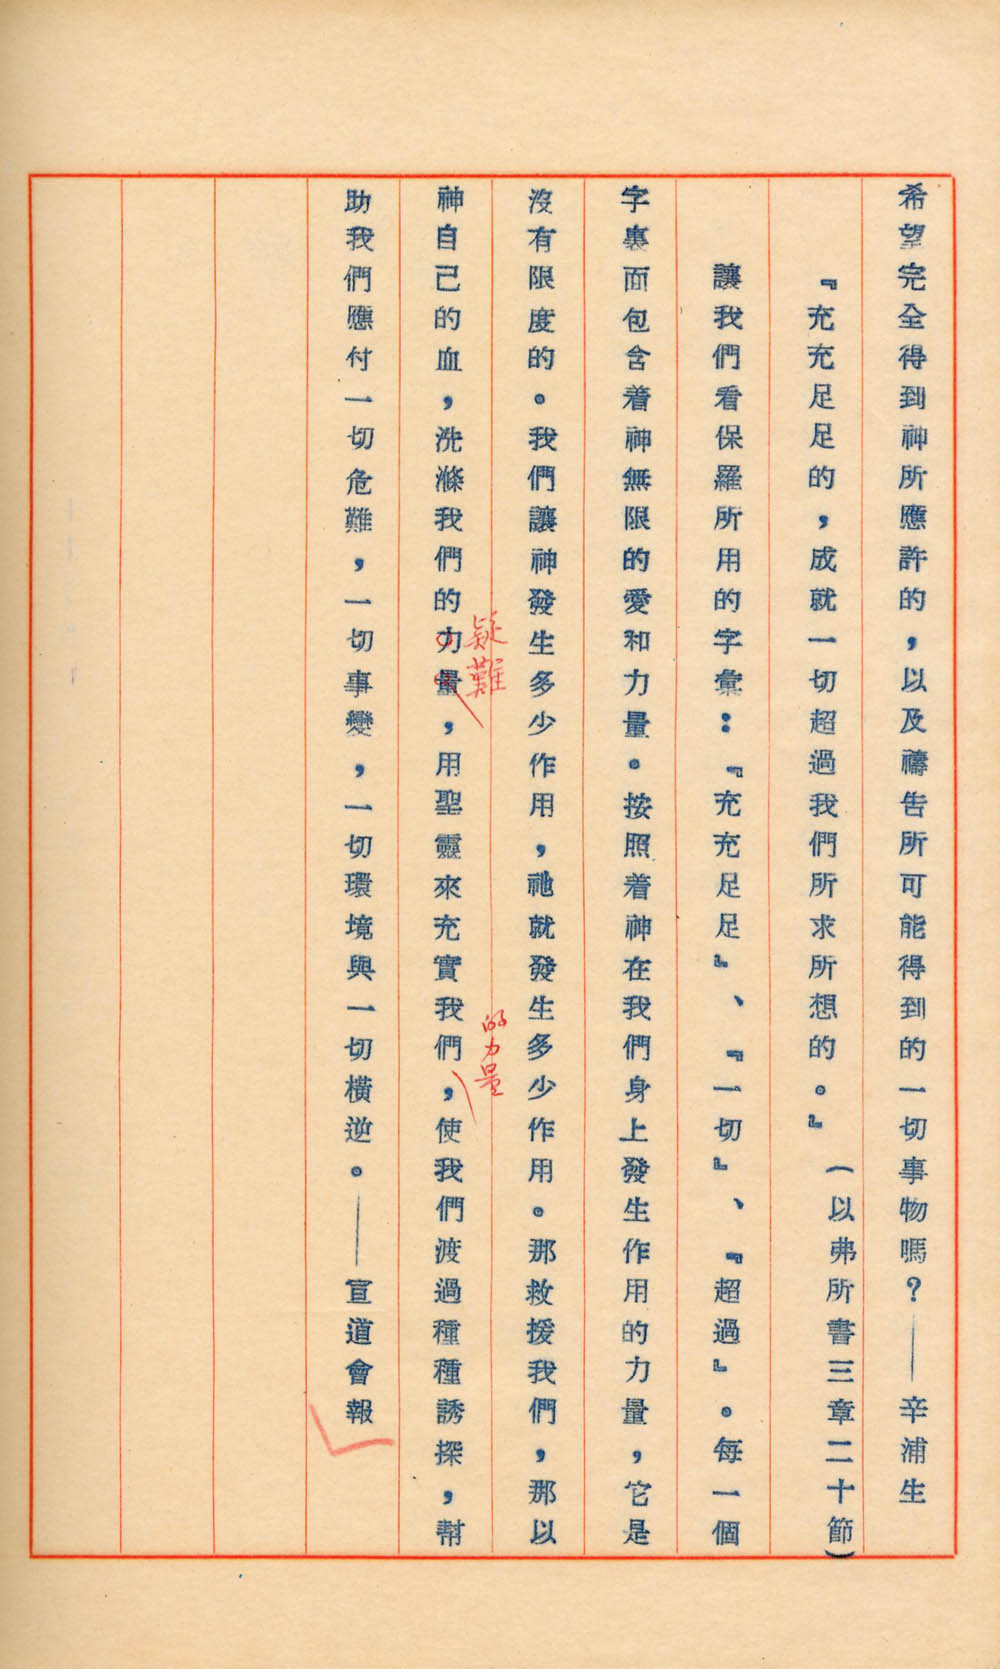 希望完全得到神所應許的，以及禱告所可能得到的一切事物嗎？——辛浦生
『充充足足的，成就一切超過我們所求所想的。』（以弗所書三章二十節）
讓我們看保羅所用的字彙：『充充足足』、『一切』、『超過』。每一個
字裏面包含着神無限的愛和力量。按照着神在我們身上發生作用的力量，它是
沒有限度的。我們讓神發生多少作用，祂就發生多少作用。那救援我們，那以
疑難
的力量
神自己的血，洗滌我們的力量，用聖靈來充實我們，使我們渡過種種誘探，幫
助我們應付一切危難，一切事變，一切環境與一切橫逆。——宣道會報